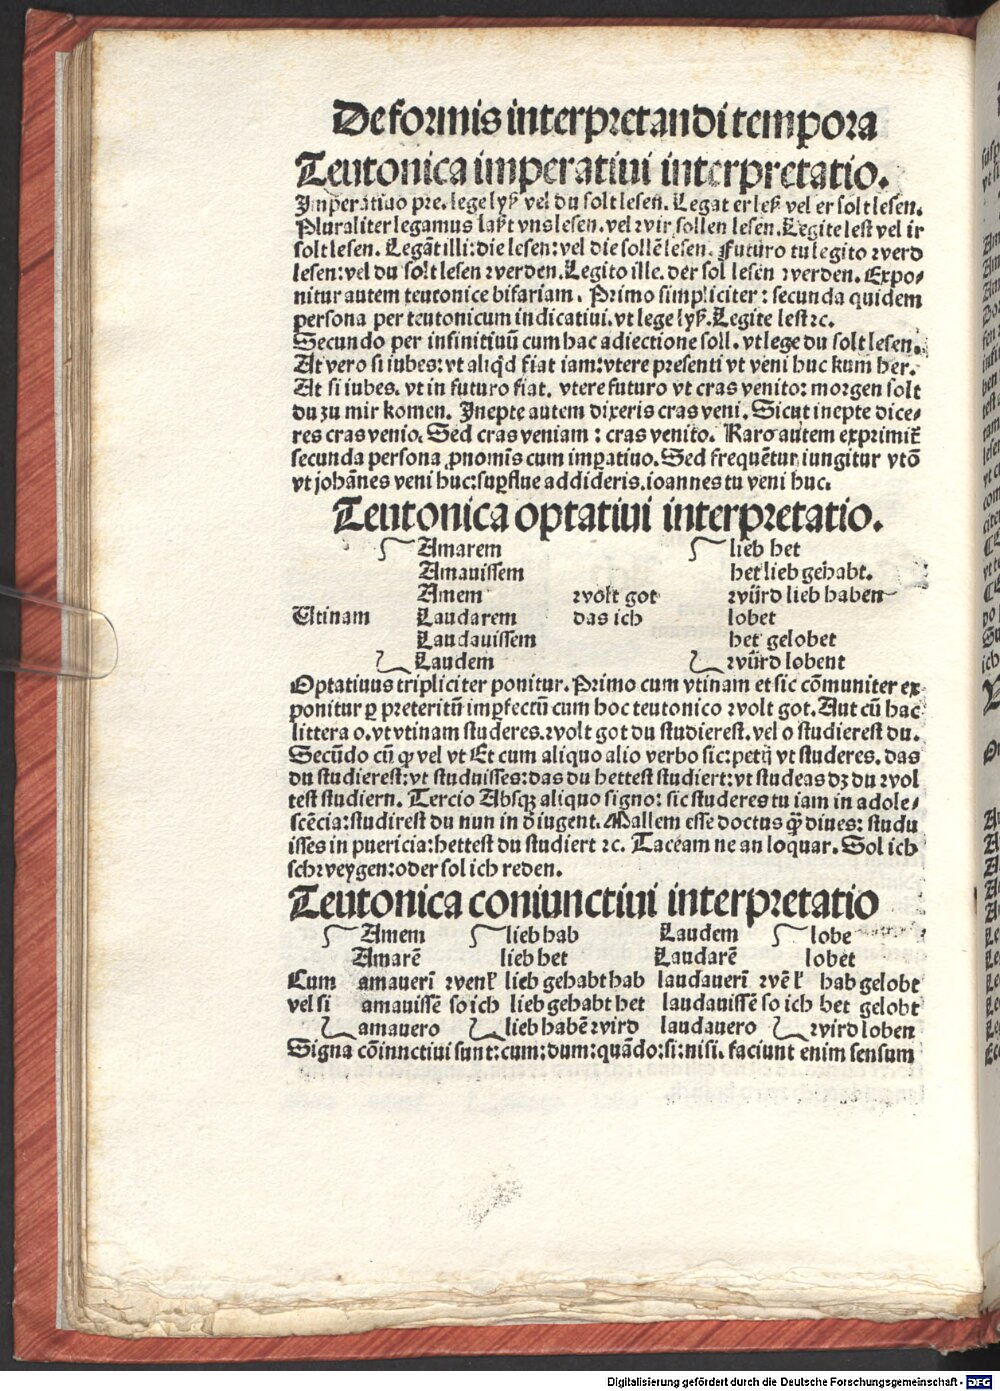 De formis interpretandi tempora
Teutonica imperatiui interpretatio.
Imperatiuo pre. lege lyß vel du solt lesen. Legat er leß vel er solt lesen.
Pluraliter legamus laßt vns lesen. vel wir sollen lesen. Legite lest vel ir
solt lesen. Legāt illi: die lesen: vel die sollē lesen. Futuro tu legito werd
lesen: vel du solt lesen werden. Legito ille. der sol lesen werden. Expo-
nitur autem teutonice bifariam. Primo simpliciter: secunda quidem
persona per teutonicum indicatiui. vt lege lyß. Legite lest ꝛc.
Secundo per infinitiuū cum hac adiectione soll. vt lege du solt lesen.
At vero si iubes: vt aliqd fiat iam: vtere presenti vt veni huc kum her.
At si iubes. vt in futuro fiat. vtere futuro vt cras venito: morgen solt
du zu mir komen. Inepte autem dixeris cras veni. Sicut inepte dice-
res cras venio. Sed cras veniam: cras venito. Raro autem exprimit̄
secunda persona ꝓnomīs cum imꝑatiuo. Sed frequētur iungitur vtō
vt johānes veni huc: suꝑflue addideris. ioannes tu veni huc.
Teutonica optatiui interpretatio.
Amarem lieb het
Amauissem het lieb gehabt.
Amem wolt got würd lieb haben
Utinam Laudarem das ich lobet
Laudauissem het gelobet
Laudem würd lobent
Optatiuus tripliciter ponitur. Primo cum vtinam et sic cōmuniter ex
ponitur ꝑ preteritū imꝑfectū cum hoc teutonico wolt got. Aut cū hac
littera o. vt vtinam studeres. wolt got du studierest. vel o studierest du.
Secūdo cū ꝙ vel vt Et cum aliquo alio verbo sic: petij vt studeres. das
du studierest: vt studuisses: das du hettest studiert: vt studeas dz du wol
test studiern. Tercio Absqꝫ aliquo signo: sic studeres tu iam in adole-
scēcia: studirest du nun in d iugent. Mallem esse doctus ꝙ̄ diues: studu
isses in puericia: hettest du studiert ꝛc. Taceam ne an loquar. Sol ich
schweygen: oder sol ich reden.
Teutonica coniunctiui interpretatio
Amem lieb hab Laudem lobe
Amarē lieb het Laudarē lobet
Cum amauerī wenk̄ lieb gehabt hab laudauerī wēk̄ hab gelobt
vel si amauissē so ich lieb gehabt het laudauissē so ich het gelobt
amauero lieb habē wird laudauero wird loben
Signa cōinnctiui sunt: cum: dum: quādo: si: nisi. faciunt enim sensum
Digitalisierung gefördert durch die Deutsche Forschungsgemeinschaft - DFG